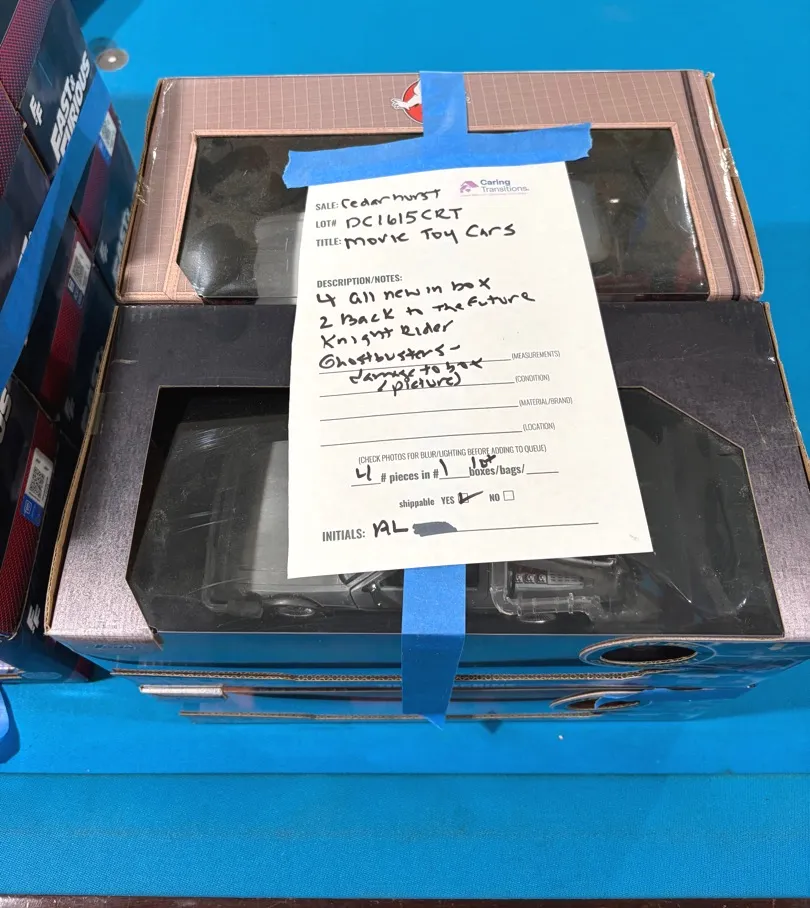 FAST &
FURIOUS
Caring
Transitions.
SALE: Cedarhurst
LOT# DC1615CRT
TITLE: Movie Toy Cars
DESCRIPTION/NOTES:
4 all new in box
2 Back to The Future
Knight Rider
Ghostbusters-
(MEASUREMENTS)
damage to box
(picture)
(CONDITION)
(MATERIAL/BRAND)
(LOCATION)
(CHECK PHOTOS FOR BLUR/LIGHTING BEFORE ADDING TO QUEUE)
4 # pieces in # 1 lot boxes/bags/
shippable YES NO
INITIALS: AL